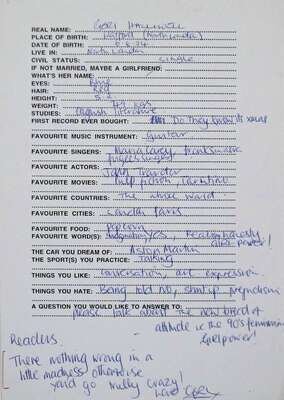 REAL NAME: GERI HALLIWELL
PLACE OF BIRTH: Watford (North London)
DATE OF BIRTH: 6.8.74
LIVE IN: North London
CIVIL STATUS: Single
IF NOT MARRIED, MAYBE A GIRLFRIEND:
WHAT'S HER NAME:
EYES: Blue
HAIR: Red
HEIGHT: 5.2
WEIGHT: kgs
STUDIES: English literature
FIRST RECORD EVER BOUGHT: Do They know its xmas
FAVOURITE MUSIC INSTRUMENT: Guitar
FAVOURITE SINGERS: Maria carey, frank sinatra
FAVOURITE ACTORS:
John Travolta
FAVOURITE MOVIES: Pulp fiction, Tarantino
FAVOURITE COUNTRIES: The whole world
FAVOURITE CITIES: London Paris
FAVOURITE FOOD: Popcorn
FAVOURITE WORD(S): YES,
power!
THE CAR YOU DREAM OF: Aston Martin
THE SPORT(S) YOU PRACTICE: Talking
THINGS YOU LIKE: conversation, art expression
THINGS YOU HATE: Being told NO, shutup
A QUESTION YOU WOULD LIKE TO ANSWER TO:
please talk about the new breed of
attitude in the 90's feminism
Girlpower!
Readers.
There nothing wrong in a
little madness otherwise
you'd go really crazy!
Love Geri